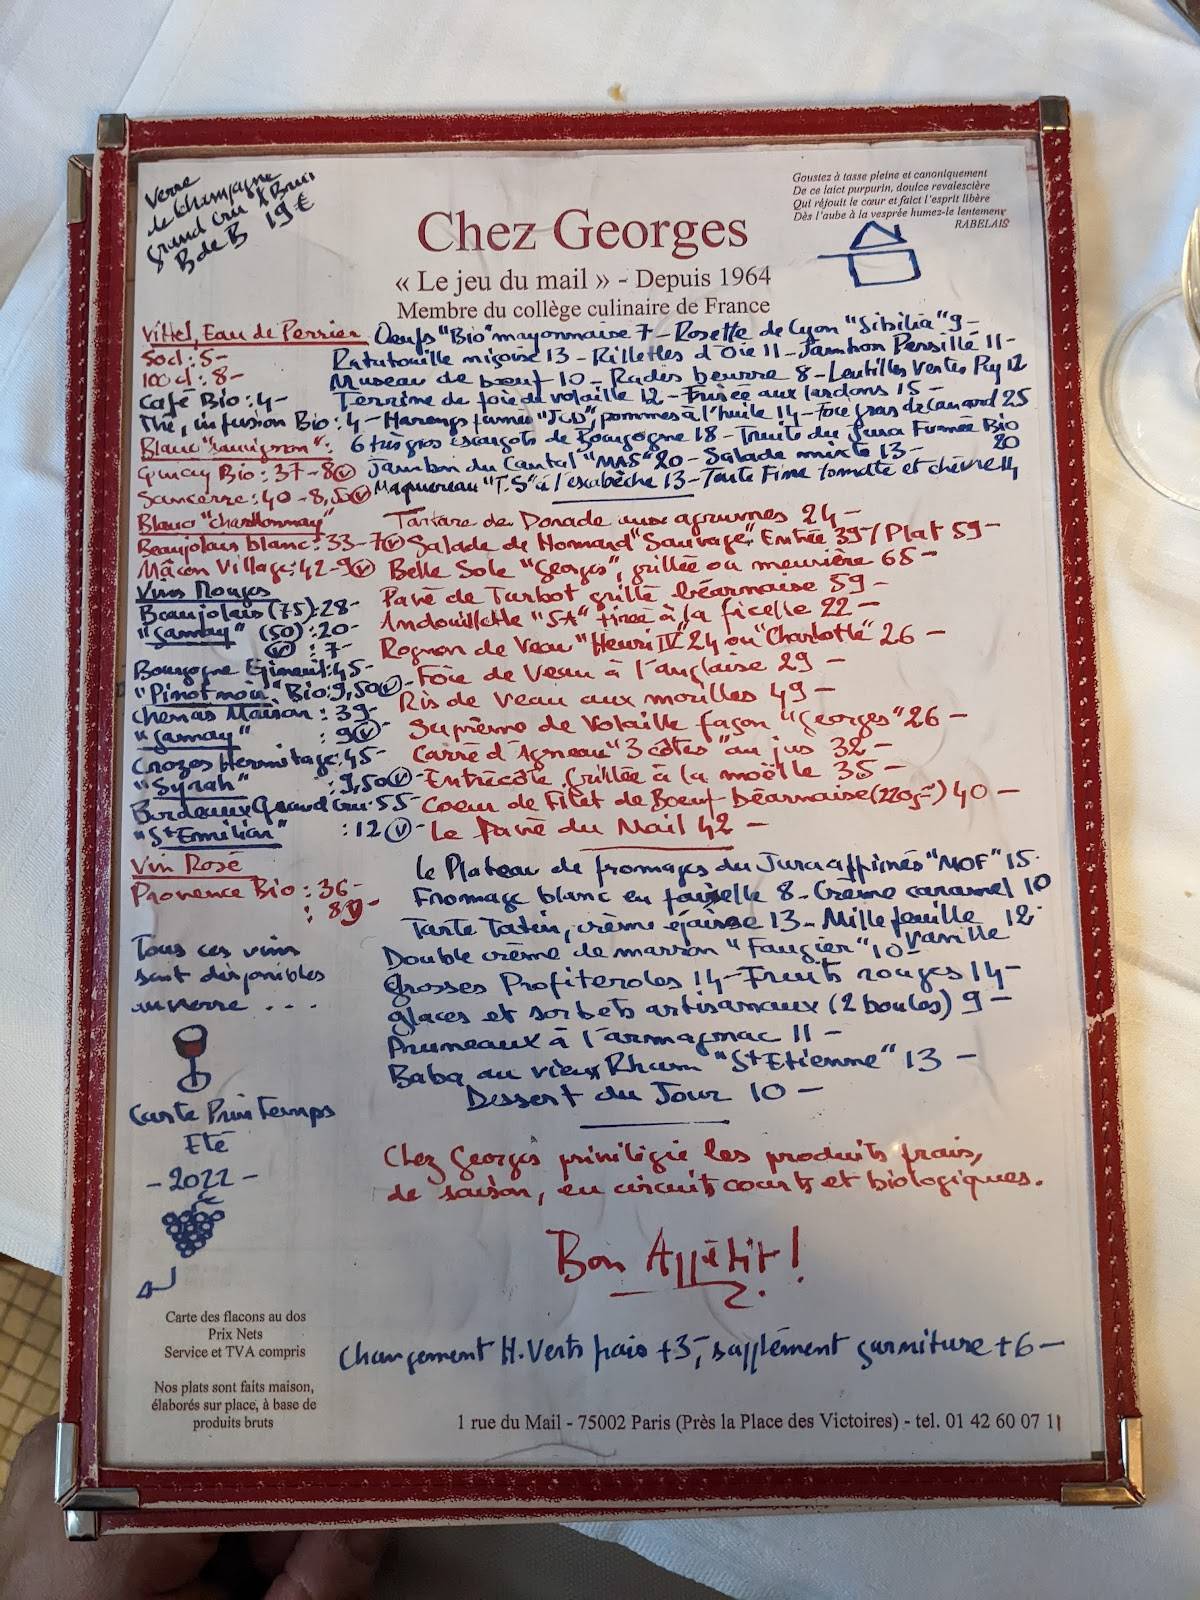 Verre
de champagne
grand cru "A Bruin
B de B 19€
Goustez à tasse pleine et canoniquement
De ce laict purpurin, doulce revalescière
Qui réfouit le cœur et faict l'esprit libère
Dès l'aube à la vesprée humez-le lentement
RABELAIS
Chez Georges
« Le jeu du mail » - Depuis 1964
Membre du collège culinaire de France
Vittel, Eau de Perrier
50cl: 5-
100cl: 8-
Café Bio: 4-
Thé, infusion Bio: 4-
Blanc "sauvignon":
Quincy Bio: 37-8(v)
Sancerre: 40-8,50(v)
Blanc "chardonnay"
Beaujolais blanc: 33-7(v)
Mâcon Village: 42-9(v)
Vins Rouges
Beaujolais (75): 28-
"Gamay" (50): 20-
(v): 7-
Bourgogne Epineuil: 45-
"Pinot noir" Bio: 9,50(v)-
Chenas Maison: 39-
"Gamay" : 9(v)-
Crozes Hermitage: 45-
"Syrah" : 9,50(v)-
Bordeaux Grand Cru: 55-
"St Emilian" : 12(v)-
Vin Rosé
Provence Bio: 36-
: 8(v)-
Tous ces vins
sont disponibles
au verre ...
Carte Printemps
Eté
- 2022 -
Carte des flacons au dos
Prix Nets
Service et TVA compris
Nos plats sont faits maison,
élaborés sur place, à base de
produits bruts
Oeufs "Bio" mayonnaise 7 - Rosette de Lyon "Sibilia" 9 -
Ratatouille niçoise 13 - Rillettes d'Oie 11 - Jambon Persillé 11 -
Museau de bœuf 10 - Radis beurre 8 - Lentilles vertes Puy 12
Terrine de foie de volaille 12 - Frisée aux lardons 15 -
Harengs fumés "JCD", pommes à l'huile 14 - Foie gras de canard 25
6 très gros escargots de Bourgogne 18 - Truite du Jura Fumée Bio 20
Jambon du Cantal "MAS" 20 - Salade mixte 13 -
Maquereau "T.S" à l'escabèche 13 - Tarte Fine tomate et chèvre 14
Tartare de Dorade aux agrumes 24 -
Salade de Homard "Sauvage" Entrée 39 / Plat 59 -
Belle Sole "Georges", grillée ou meunière 65 -
Pavé de Turbot grillé béarnaise 59 -
Andouillette "5A" tirée à la ficelle 22 -
Rognon de Veau "Henri IV" 24 ou "Charlotte" 26 -
Foie de Veau à l'anglaise 29 -
Ris de Veau aux morilles 49 -
Suprême de Volaille façon "Georges" 26 -
Carré d'Agneau "3 côtes" au jus 32 -
Entrecôte Grillée à la moëlle 35 -
Coeur de Filet de Boeuf béarnaise (220g) 40 -
Le Pavé du Mail 42 -
Le Plateau de fromages du Jura affinés "MOF" 15.
Fromage blanc en faisselle 8 - Crème caramel 10
Tarte Tatin, crème épaisse 13 - Millefeuille vanille 12.
Double crème de marron "Faugier" 10 -
Grosses Profiteroles 14 - Fruits rouges 14 -
Glaces et sorbets artisanaux (2 boules) 9 -
Pruneaux à l'armagnac 11 -
Baba au vieux Rhum "St Etienne" 13 -
Dessert du Jour 10 -
Chez Georges privilégie les produits frais,
de saison, en circuits courts et biologiques.
Bon Appétit !
Changement H. Verts frais +3-, supplément garniture +6 -
1 rue du Mail - 75002 Paris (Près la Place des Victoires) - tel. 01 42 60 07 11